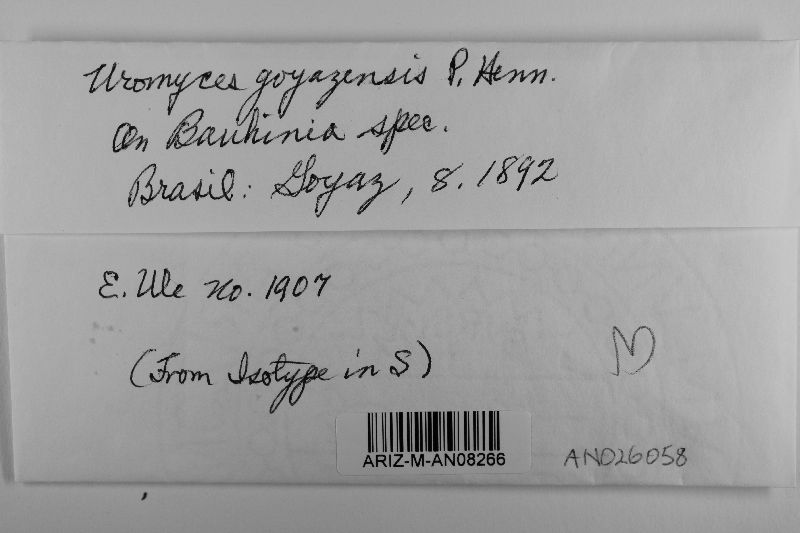 Uromyces goyazensis P. Henn.
On Bauhinia spec.
Brasil: Goyaz, 8. 1892
E. Ule No. 1907
(From Isotype in S)
ARIZ-M-AN08266
AN026058